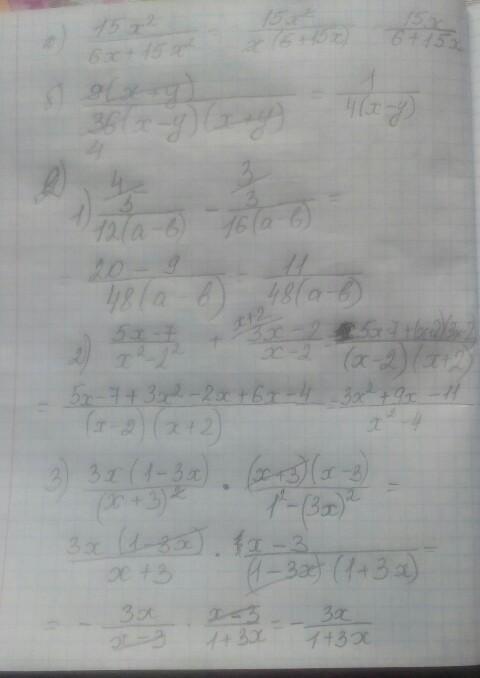 а) 15x²/(6x+15x²) = 15x²/(x(6+15x)) 15x/(6+15x)
б) 9(x+y)/(36(x-y)(x+y)) = 1/(4(x-y))
4
2)
1) 4/ 5/(12(a-b)) - 3/ 3/(16(a-b)) =
- (20-9)/(48(a-b)) - 11/(48(a-b))
2) (5x-7)/(x²-2²) + x+2/ (3x-2)/(x-2) = (5x-7+(x+2)(3x-2))/((x-2)(x+2))
= (5x-7+3x²-2x+6x-4)/((x-2)(x+2)) = (3x²+9x-11)/(x²-4)
3) 3x(1-3x)/(x+3)² · (x+3)(x-3)/(1²-(3x)²) =
3x(1-3x)/(x+3) · (x-3)/((1-3x)(1+3x)) =
= - 3x/(x-3) · (x-3)/(1+3x) = - 3x/(1+3x)